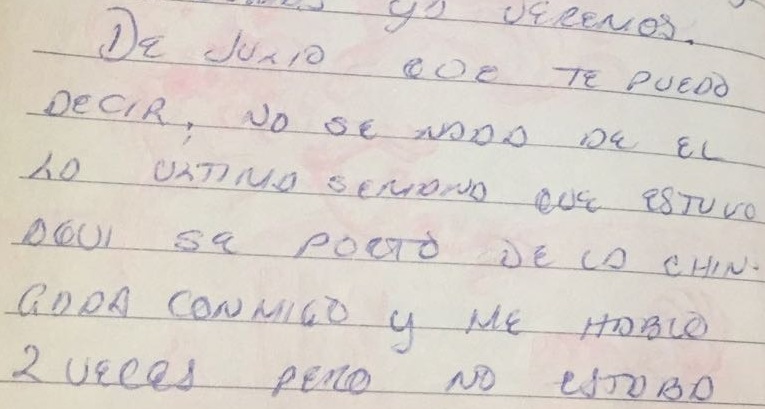 ya veremos.
De Julio que te puedo
decir, no se nada de el
la ultima semana que estuvo
aqui se porto de la chin-
gada conmigo y me hablo
2 veces pero no estaba